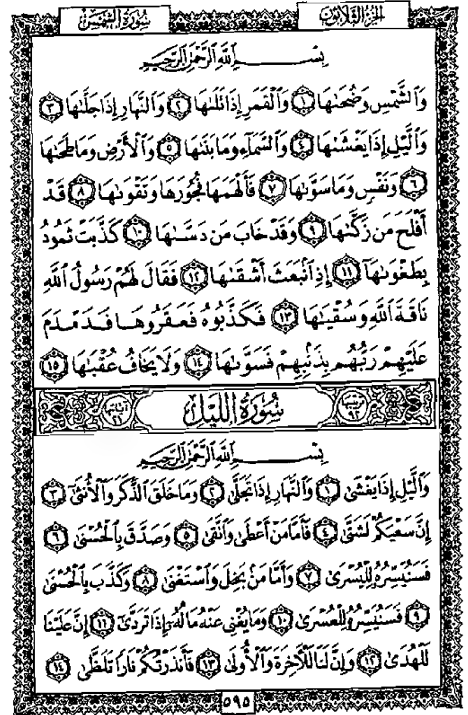 سُورَةُ الشَّمْسِ
الجُزءُ الثَّلَاثُونَ
بِسْمِ اللَّهِ الرَّحْمَٰنِ الرَّحِيمِ
وَالشَّمْسِ وَضُحَىٰهَا ١ وَالْقَمَرِ إِذَا تَلَىٰهَا ٢ وَالنَّهَارِ إِذَا جَلَّىٰهَا ٣
وَالَّيْلِ إِذَا يَغْشَىٰهَا ٤ وَالسَّمَاءِ وَمَا بَنَىٰهَا ٥ وَالْأَرْضِ وَمَا طَحَىٰهَا
٦ وَنَفْسٍ وَمَا سَوَّىٰهَا ٧ فَأَلْهَمَهَا فُجُورَهَا وَتَقْوَىٰهَا ٨ قَدْ
أَفْلَحَ مَن زَكَّىٰهَا ٩ وَقَدْ خَابَ مَن دَسَّىٰهَا ١٠ كَذَّبَتْ ثَمُودُ
بِطَغْوَىٰهَا ١١ إِذِ انْبَعَثَ أَشْقَىٰهَا ١٢ فَقَالَ لَهُمْ رَسُولُ اللَّهِ
نَاقَةَ اللَّهِ وَسُقْيَٰهَا ١٣ فَكَذَّبُوهُ فَعَقَرُوهَا فَدَمْدَمَ
عَلَيْهِمْ رَبُّهُم بِذَنۢبِهِمْ فَسَوَّىٰهَا ١٤ وَلَا يَخَافُ عُقْبَٰهَا ١٥
ترتيبها ٩٢ سُورَةُ اللَّيْلِ آياتها ٢١
بِسْمِ اللَّهِ الرَّحْمَٰنِ الرَّحِيمِ
وَالَّيْلِ إِذَا يَغْشَىٰ ١ وَالنَّهَارِ إِذَا تَجَلَّىٰ ٢ وَمَا خَلَقَ الذَّكَرَ وَالْأُنثَىٰ ٣
إِنَّ سَعْيَكُمْ لَشَتَّىٰ ٤ فَأَمَّا مَنْ أَعْطَىٰ وَاتَّقَىٰ ٥ وَصَدَّقَ بِالْحُسْنَىٰ ٦
فَسَنُيَسِّرُهُ لِلْيُسْرَىٰ ٧ وَأَمَّا مَنۢ بَخِلَ وَاسْتَغْنَىٰ ٨ وَكَذَّبَ بِالْحُسْنَىٰ
٩ فَسَنُيَسِّرُهُ لِلْعُسْرَىٰ ١٠ وَمَا يُغْنِي عَنْهُ مَالُهُ إِذَا تَرَدَّىٰ ١١ إِنَّ عَلَيْنَا
لَلْهُدَىٰ ١٢ وَإِنَّ لَنَا لَلْآخِرَةَ وَالْأُولَىٰ ١٣ فَأَنذَرْتُكُمْ نَارًا تَلَظَّىٰ ١٤
٥٩٥